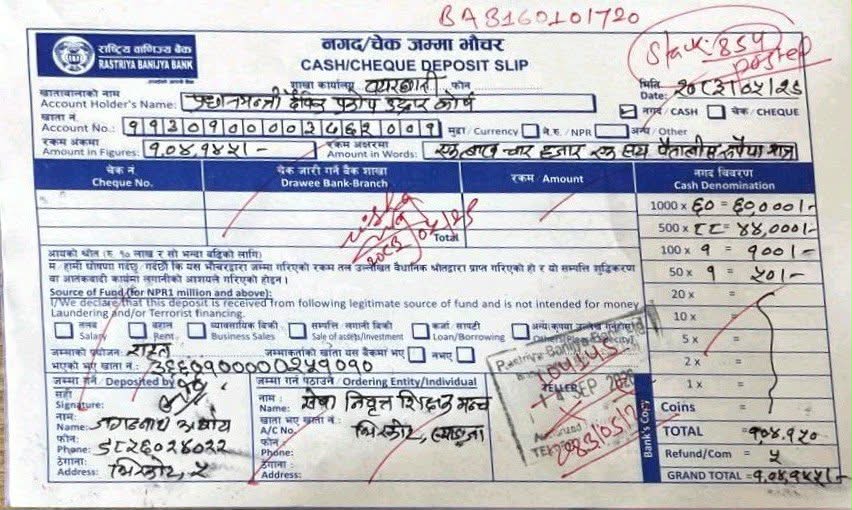 BAB160101720
राष्ट्रिय वाणिज्य बैंक
RASTRIYA BANIJYA BANK
नगद/चेक जम्मा भौचर
CASH/CHEQUE DEPOSIT SLIP
Stack: 854
posted
शाखा कार्यालय फोन
मिति
Date:
खातावालाको नाम
Account Holder's Name: प्रधानमन्त्री दैविक प्रकोप उद्धार कोष
नगद/CASH चेक/CHEQUE
खाता नं.
Account No.: मुद्रा/Currency ने.रु./NPR अन्य/Other
रकम अंकमा
Amount in Figures: १,०४,१४५।-
रकम अक्षरमा
Amount in Words: एक लाख चार हजार एक सय पैतालीस रुपैया मात्र
चेक नं.
Cheque No.
चेक जारी गर्ने बैंक शाखा
Drawee Bank-Branch
रकम/Amount
Total
नगद विवरण
Cash Denomination
1000 x ६० = ६०,०००।-
500 x ८८ = ४४,०००।-
100 x १ = १००।-
50 x १ = ५०।-
20 x =
10 x =
5 x =
2 x =
1 x =
Coins =
TOTAL = १०४,१५०
Refund/Com = ५
GRAND TOTAL = १,०४,१४५।-
आयको श्रोत (रु. १० लाख र सो भन्दा बढिको लागि)
म/हामी घोषणा गर्दछु/गर्दछौं कि यस भौचरद्वारा जम्मा गरिएको रकम तल उल्लेखित वैधानिक श्रोतद्वारा प्राप्त गरिएको हो र यो सम्पत्ति शुद्धिकरण
वा आतंकवादी कार्यमा लगानीको आशयले गरिएको होइन।
Source of Fund (for NPR1 million and above):
I/We declare that this deposit is received from following legitimate source of fund and is not intended for money
Laundering and/or Terrorist financing.
तलब
Salary
बहाल
Rent
व्यावसायिक बिक्री
Business Sales
सम्पत्ति/लगानी बिक्री
Sale of assets/Investment
कर्जा/सापटी
Loan/Borrowing
जम्माको प्रयोजन:
जम्माकर्ताको खाता यस बैंकमा भए नभए
भएको भए खाता नं.:
जम्मा गर्ने/Deposited by
सही
Signature:
नाम:
Name:
फोन:
Phone: ९८२६०२४०२२
ठेगाना:
Address:
जम्मा गर्न पठाउने/Ordering Entity/Individual
नाम:
Name: सेवा निवृत्त शिक्षक मञ्च
खाता भए खाता नं.:
A/C No.
फोन:
Phone:
ठेगाना:
Address:
104145
TELLER
Bank's Copy